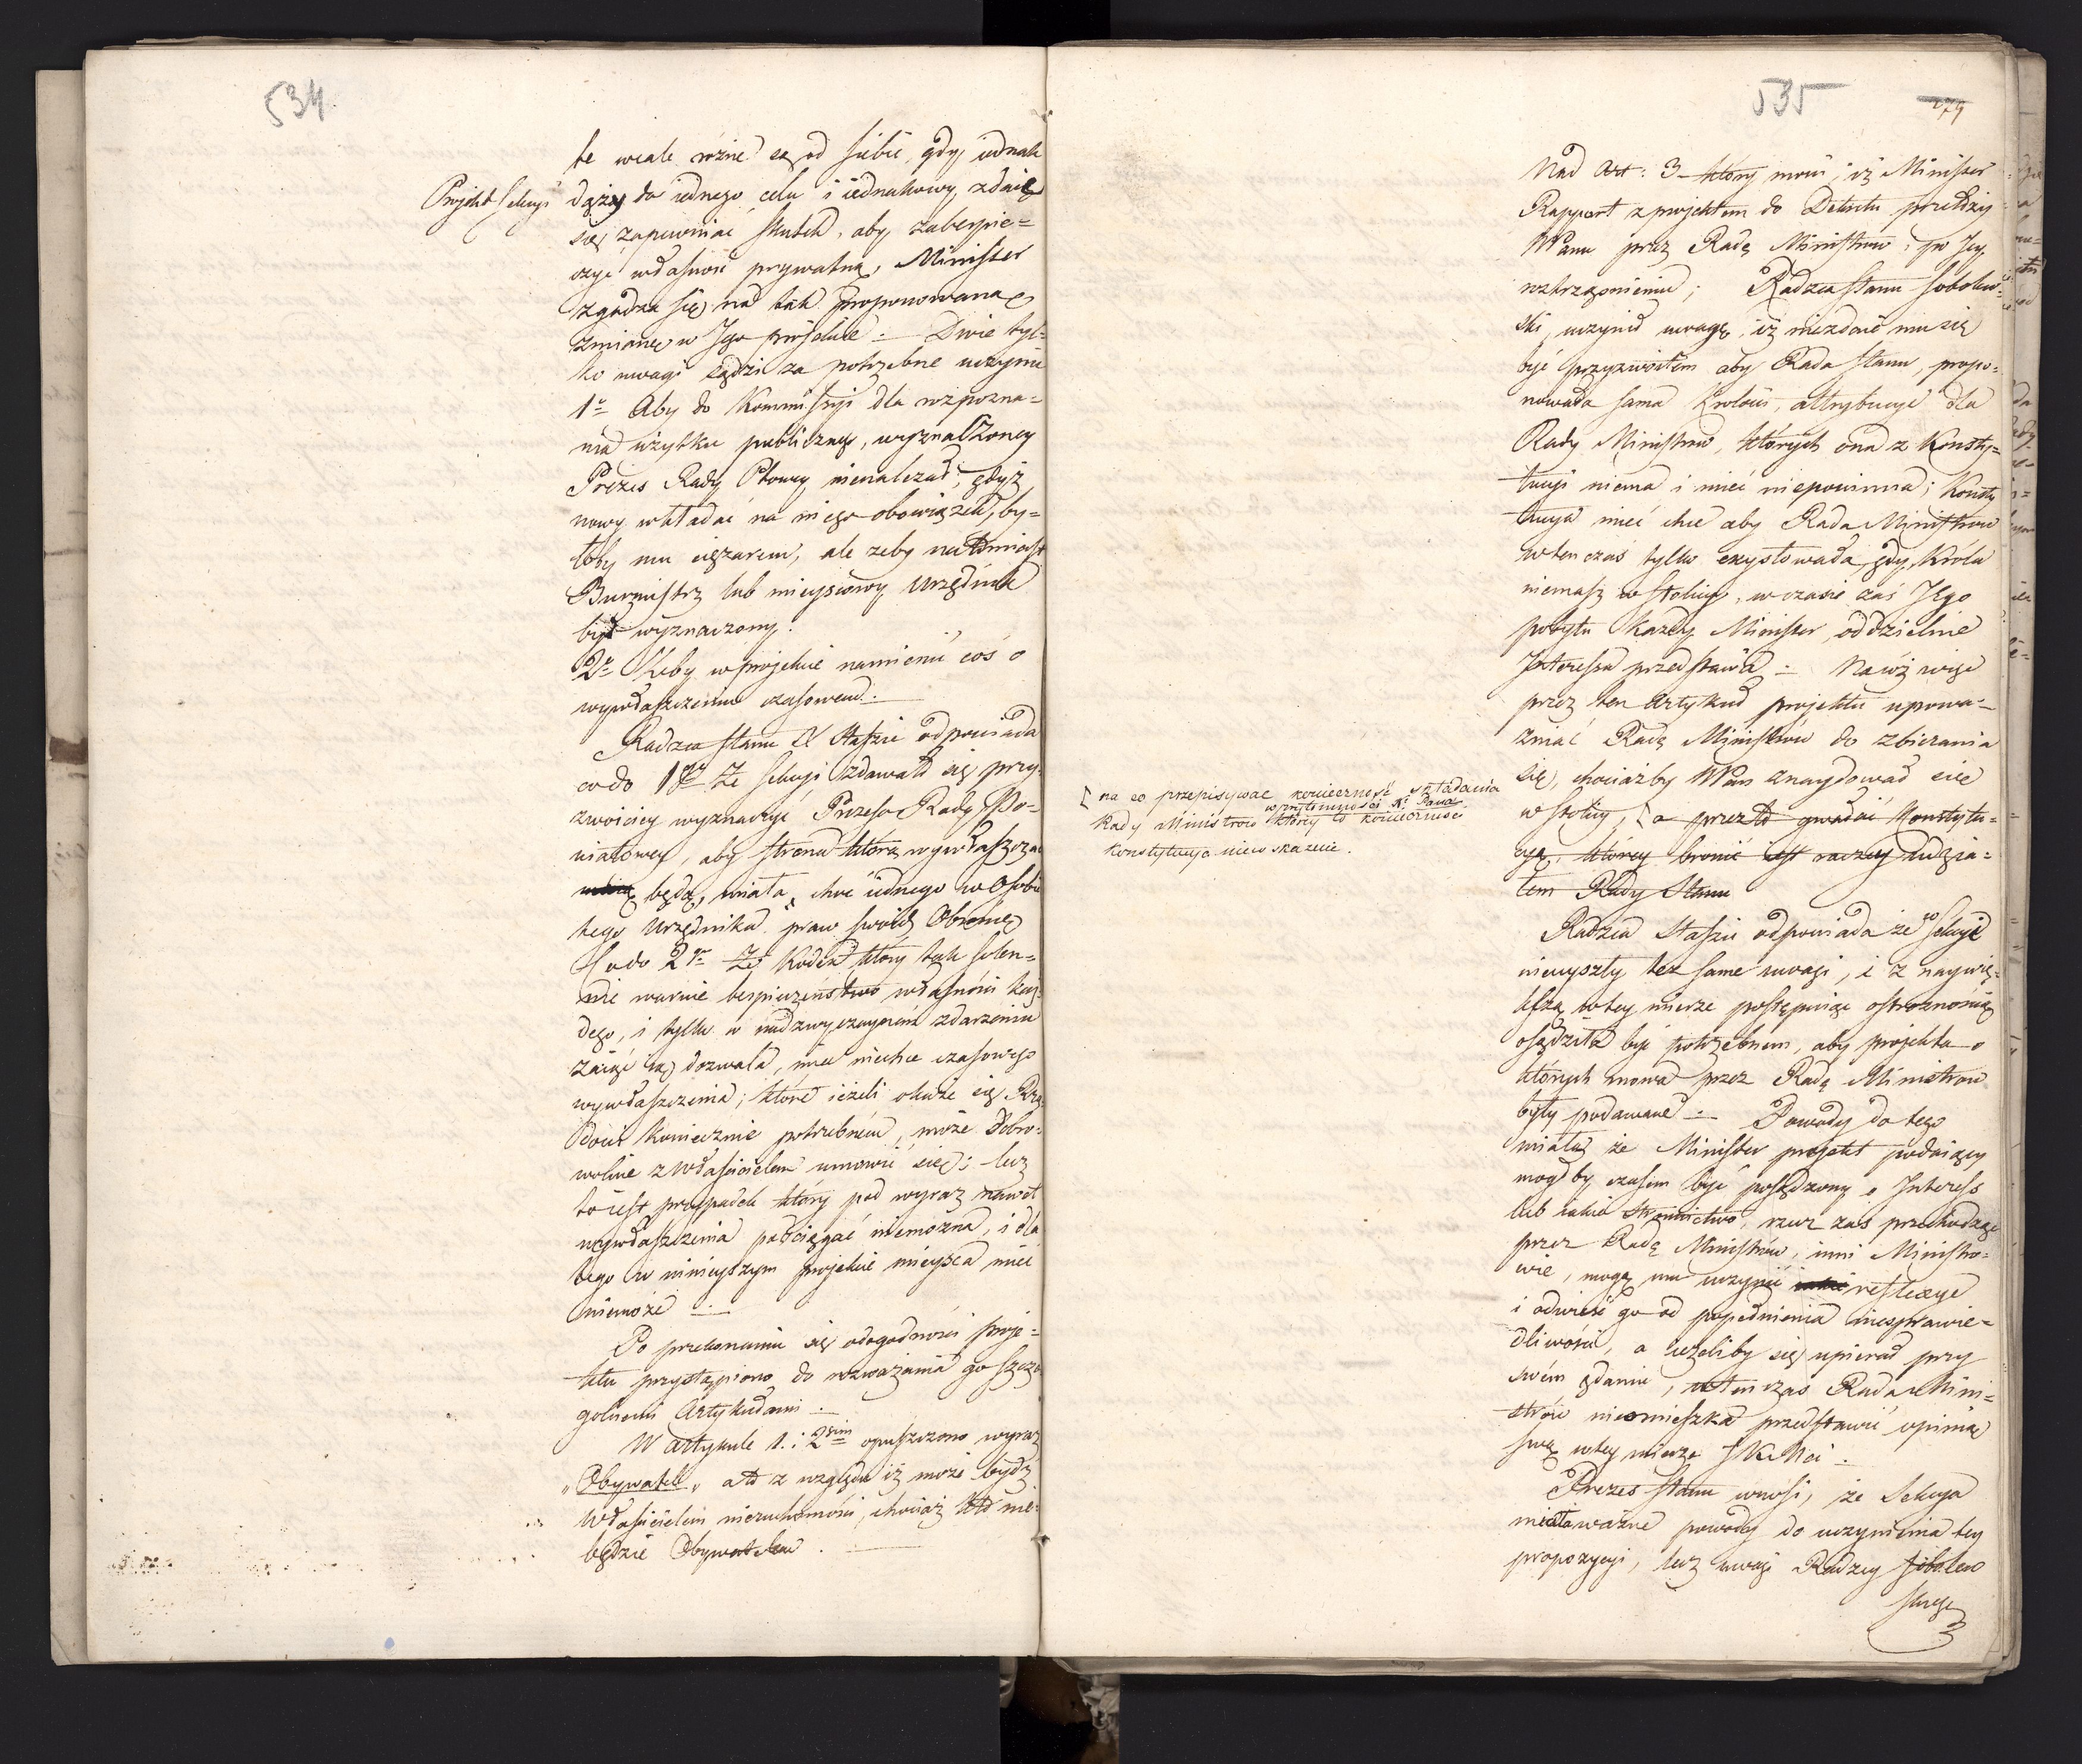 534
te wcale różne są od siebie, gdy iednak
Projekt Sekcyi
dążą do iednego celu i iednakowy, zdaie
się zapewniać skutek, aby zabespie=
czyć własność prywatną, Minister
zgadza się na tak proponowaną
zmianę w Jego projekcie. — Dwie tyl=
ko uwagi sądzi za potrzebne uczynić
1o Aby do Kommissyi dla rozpozna=
nia użytku publicznego, wyznaczoney
Prezes Rady Ptowey nienależał, gdyż
nowy wkładać na niego obowiązek, by=
łoby mu ciężarem, ale żeby natomiast
Burmistrz lub mieyscowy Urzędnik
był wyznaczony.
2o Żeby w projekcie namienić coś o
wywłaszczeniu czasowem.—
Radzca Stanu X Staszic odpowiada
co do 1go Że Sekcyi zdawało się przy=
zwoiciey wyznaczyć Prezesa Rady Po=
wiatowey, aby strona którą wywłaszczać
będą, miała, choć iednego w Osobie
tego Urzędnika praw swoich Obrońcę
Co do 2go Że Kodex, który tak solen=
nie waruie bespieczeństwo własności każ=
dego, i tylko w nadzwyczaynem zdarzeniu
zaiąć ią dozwala, niechce czasowego
wywłaszczenia; które ieżeli okaże się Rzą=
dowi koniecznie potrzebnem, może dobro=
wolnie z właścicielem umówić się; lecz
to iest przypadek który pod wyraz nawet
wywłaszczenia podciągać niemożna, i dla
tego w ninieyszym projekcie mieysca mieć
niemoże —
Po przekonaniu się o dogodności proje=
ktu przystąpiono do rozważania go szcze
gólnemi Artykułami —
W artykule 1. i 2gim opuszczono wyraz
„Obywatel„ a to z względu iż może bydź
Właścicielem nieruchomości, chociaż kto nie=
będzie Obywatelem. —
535
279
Nad Art: 3 który mówi, iż Minister
Rapport z projektem do Dekretu przełoży
NPanu przez Radę Ministrów, po Jey
roztrząśnieniu; Radzca Stanu Sobolew=
ski, uczynił uwagę, iż niezdaie mu się
być przyzwoitem aby Rada Stanu, propo=
nowała sama Królowi, attrybucye dla
Rady Ministrów, których ona z Konsty=
tucyi niema i mieć niepowinna; Konsty
tucya mieć chce aby Rada Ministrów
w ten czas tylko exystowała, gdy Króla
niemasz w stolicy, w czasie zaś Jego
pobytu każdy Minister oddzielnie
Interessa przedstawia — Na cóż więc
przez ten Artykuł projektu upowa=
żniać Radę Ministrów do zbierania
się, chociażby NPan znaydował się
w stolicy, [a przezto gwałcić Konstytu=
cyą, którey bronić iest raczey udzia=
łem Rady Stanu
[na co przepisywać konieczność składania
w przytomności N. Pana
Rady Ministrów którey to konieczności
Konstytucya niewskazuie.
Radzca Staszic odpowiada że Sekcyi
nieuszły też same uwagi, i z naywię=
kszą w tey mierze postępuiąc ostrożnością
osądziła być potrzebnem, aby projekta o
których mowa przez Radę Ministrów
były podawane — Powody do tego
miała że Minister projekt podaiący
mogłby czasem być posądzony o Interess
lub iakie stronnictwo, rzecz zaś przechodząc
przez Radę Ministrów, inni Ministro=
wie, mogą mu uczynić reflexye
i odwieść go od popełnienia niesprawie=
dliwości, a ieżeliby się upierał przy
swém zdaniu, w ten czas Rada Mini=
strów nieomieszka przedstawić opinią
swę w tey mierze JKMci —
Prezes Stanu wnosi, że Sekcya
miała ważne powody do uczynienia tey
propozycyi, lecz uwagi Radzcy Sobolew
skiego